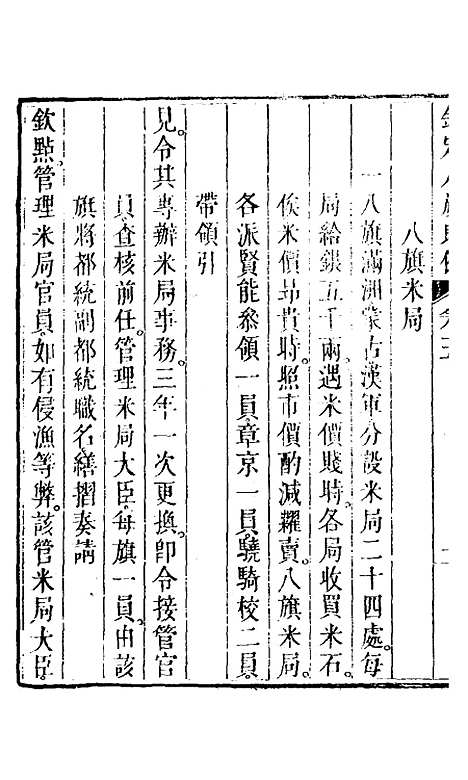 八旗米局
一八旗滿洲蒙古漢軍分設米局二十四處。每
局給銀五千兩。遇米價賤時。各局收買米石。
俟米價昂貴時。照市價酌減糶賣。八旗米局。
各派賢能叅領一員章京一員驍騎校二員。
帶領引
見。令其專辦米局事務。三年一次更換。卽令接管官
員查核前任管理米局大臣。每旗一員。由該
旗將都統副都統職名繕摺奏請
欽點。管理米局官員。如有侵漁等弊。該管米局大臣。